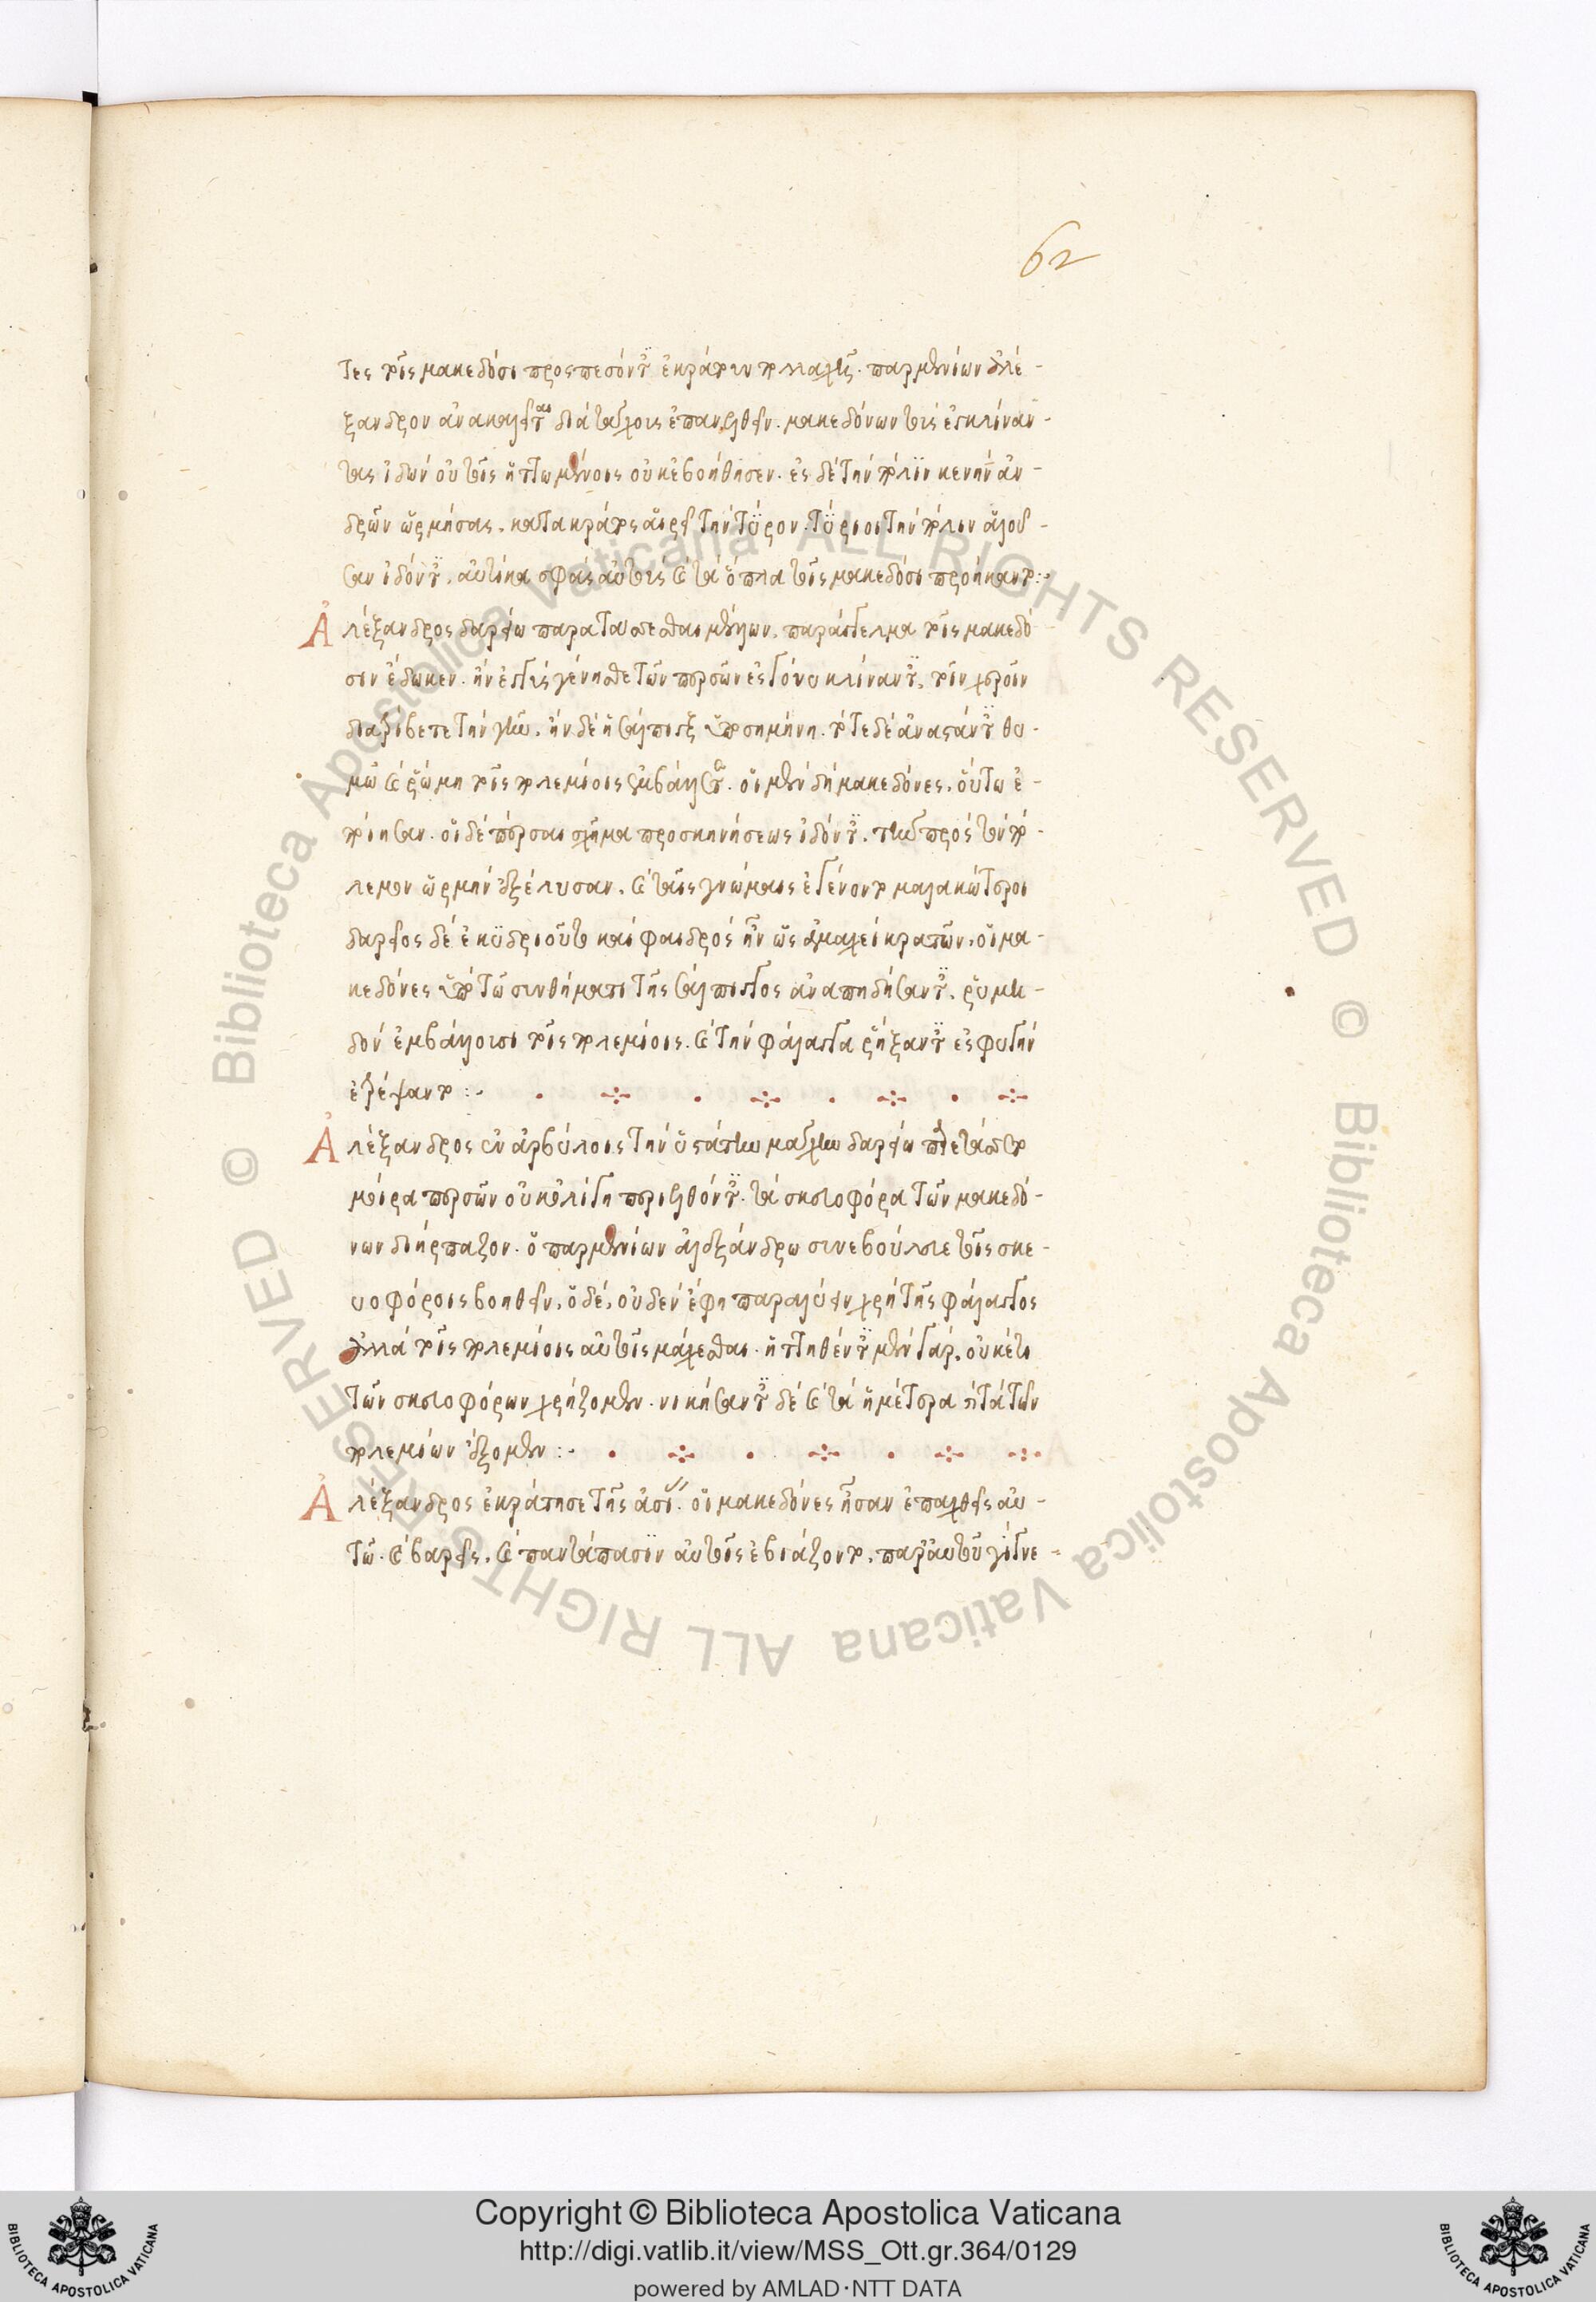 62
τες τοῖς μακεδόσι προσπεσόντες ἐκράτουν τῆς μάχης. παρμενίων ἀλέ-
ξανδρον ἀνακαλεῖται διὰ τάχους ἐπανελθεῖν. μακεδόνων τοὺς ἐκκλίναν-
τας ἰδὼν οὐ τοῖς ἡττωμένοις οὐκ ἐβοήθησεν. ἐς δὲ τὴν πόλιν κενὴν ἀν-
δρῶν ὡρμήσας. κατακράτος αἱρεῖ τὴν τύρον. τύριοι τὴν πόλιν ἁλοῦ-
σαν ἰδόντες. αὐτίκα σφᾶς αὐτοὺς καὶ τὰ ὅπλα τοῖς μακεδόσι προήκαντο:-
Ἀλέξανδρος δαρείω παρατάσσεσθαι μέλλων. παράγγελμα τοῖς μακεδό
σιν ἔδωκεν. ἢν ἐγγὺς γένησθε τῶν περσῶν ἐς γόνυ κλίναντες. τοῖν χεροῖν
διατρίβετε τὴν γῆν. ἢν δὲ ἡ σάλπιγξ ὑποσημήνη. τότε δὲ ἀναστάντες θυ-
μῶ καὶ ῥώμη τοῖς πολεμίοις ἐμβάλλετε. οἱ μὲν δὴ μακεδόνες. οὕτω ἐ-
ποίησαν. οἱ δὲ πέρσαι σχῆμα προσκηνήσεως ἰδόντες. τὴν πρὸς τὸν πό-
λεμον ὁρμὴν ἐξέλυσαν. καὶ ταῖς γνώμαις ἐγένοντο μαλακώτεροι
δαρεῖος δὲ ἐκυδριοῦτο καὶ φαιδρὸς ἦν ὡς ἀμαχεὶ κρατῶν. οἱ μα-
κεδόνες ὑπὸ τῶ συνθήματι τῆς σάλπιγγος ἀναπηδήσαντες. ῥυμη-
δὸν ἐμβάλλουσι τοῖς πολεμίοις. καὶ τὴν φάλαγγα ῥήξαντες ἐς φυγὴν
ἐτρέψαντο:-
Ἀλέξανδρος ἐν ἀρβύλοις τὴν ὑστάτην μάχην δαρείω παρετάσσετο
μοῖρα περσῶν οὐκ ὀλίγη περιελθόντες. τὰ σκευοφόρα τῶν μακεδό-
νων διήρπαζον. ὁ παρμενίων ἀλεξάνδρω συνεβούλευε τοῖς σκε-
υοφόροις βοηθεῖν. ὁ δὲ. οὐδὲν ἔφη παραλύειν χρὴ τῆς φάλαγγος
ἀλλὰ τοῖς πολεμίοις αὐτοῖς μάχεσθαι. ἡττηθέντες μὲν γὰρ. οὐκέτι
τῶν σκευοφόρων χρήζομεν. νικήσαντες δὲ καὶ τὰ ἡμέτερα καὶ τὰ τῶν
πολεμίων ἕξομεν:-
Ἀλέξανδρος ἐκράτησε τῆς ἀσί. οἱ μακεδόνες ἦσαν ἐπαχθεῖς αὐ-
τῶ. καὶ βαρεῖς. καὶ παντάπασιν αὐτοὺς ἐβιάζοντο. παρ' αὐτοῦ γίγνε-
Copyright © Biblioteca Apostolica Vaticana
http://digi.vatlib.it/view/MSS_Ott.gr.364/0129
powered by AMLAD·NTT DATA